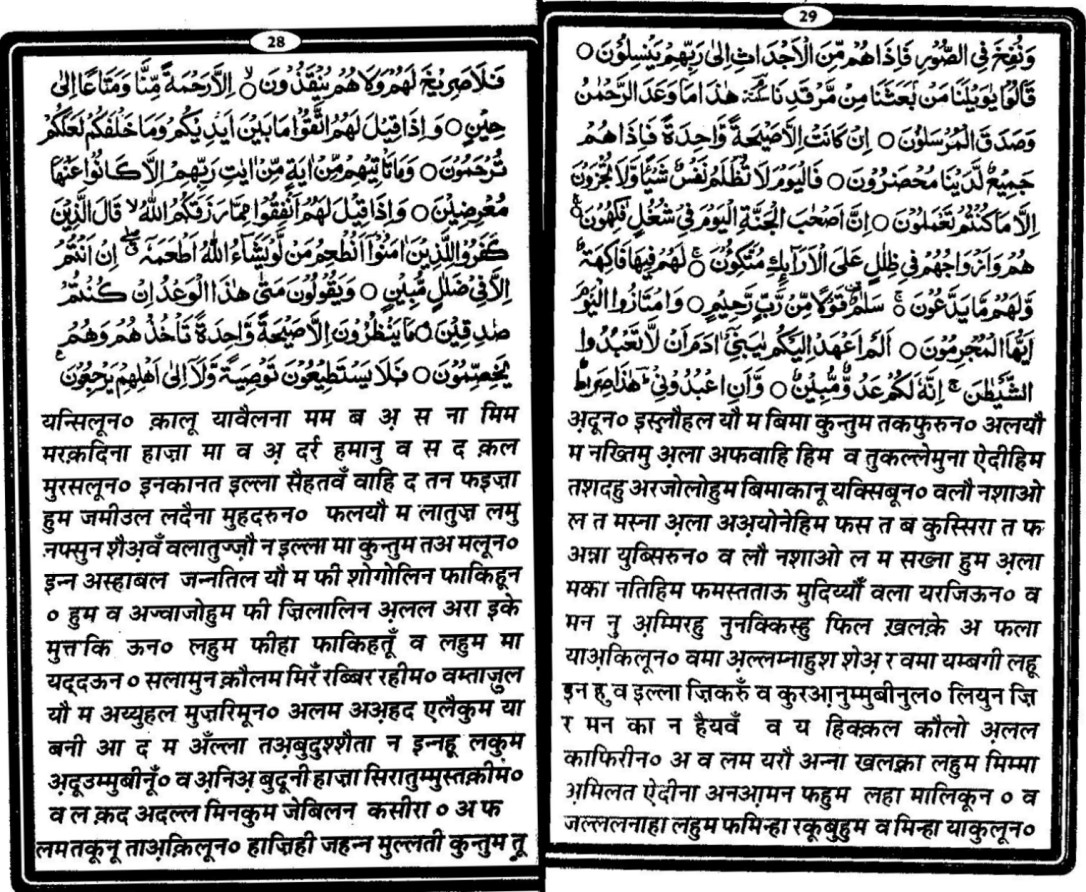 28
فَلَا صَرِيْخَ لَهُمْ وَلَا هُمْ يُنْقَذُوْنَ ۝ اِلَّا رَحْمَةً مِّنَّا وَمَتَاعًا اِلٰى
حِيْنٍ ۝ وَ اِذَا قِيْلَ لَهُمُ اتَّقُوْا مَا بَيْنَ اَيْدِيْكُمْ وَمَا خَلْفَكُمْ لَعَلَّكُمْ
تُرْحَمُوْنَ ۝ وَمَا تَاْتِيْهِمْ مِّنْ اٰيَةٍ مِّنْ اٰيٰتِ رَبِّهِمْ اِلَّا كَانُوْا عَنْهَا
مُعْرِضِيْنَ ۝ وَ اِذَا قِيْلَ لَهُمْ اَنْفِقُوْا مِمَّا رَزَقَكُمُ اللّٰهُ ۙ قَالَ الَّذِيْنَ
كَفَرُوْا لِلَّذِيْنَ اٰمَنُوْۤا اَنُطْعِمُ مَنْ لَّوْ يَشَآءُ اللّٰهُ اَطْعَمَهٗ ۖ اِنْ اَنْتُمْ
اِلَّا فِيْ ضَلٰلٍ مُّبِيْنٍ ۝ وَيَقُوْلُوْنَ مَتٰى هٰذَا الْوَعْدُ اِنْ كُنْتُمْ
صٰدِقِيْنَ ۝ مَا يَنْظُرُوْنَ اِلَّا صَيْحَةً وَّاحِدَةً تَاْخُذُهُمْ وَهُمْ
يَخِصِّمُوْنَ ۝ فَلَا يَسْتَطِيْعُوْنَ تَوْصِيَةً وَّلَاۤ اِلٰۤى اَهْلِهِمْ يَرْجِعُوْنَ
यन्सिलून० क़ालू यावैलना मम ब अ़ स ना मिम
मरक़दिना हाज़ा मा व अ़ दर्र हमानु व स द क़ल
मुरसलून० इनकानत इल्ला सैहतवँ वाहि द तन फइज़ा
हुम जमीउल लदैना मुहदरुन० फलयौ म लातुज़ लमु
नफ्सुन शैअवँ वलातुज्ज़ौ न इल्ला मा कुन्तुम तअ मलून०
इन्न अस्हाबल जन्नतिल यौ म फी शोगोलिन फाकिहून
० हुम व अज्वाजोहुम फी ज़िलालिन अ़लल अरा इके
मुत्तकि ऊन० लहुम फीहा फाकिहतूँ व लहुम मा
यद्दऊन ० सलामुन क़ौलम मिरँ रब्बिर रहीम० वम्ताज़ुल
यौ म अय्युहल मुज़रिमून० अलम अअ़हद एलैकुम या
बनी आ द म अँल्ला तअ़बुदुश्शैता न इन्नहू लकुम
अ़दूउम्मुबीनूँ० व अ़निअ़ बुदूनी हाज़ा सिरातुम्मुस्तक़ीम०
व ल क़द अदल्ल मिनकुम जेबिलन कसीरा ० अ फ
लमतकूनू ताअ़क़िलून० हाज़िही जहन्न मुल्लती कुन्तुम तू
29
وَنُفِخَ فِي الصُّوْرِ فَاِذَا هُمْ مِّنَ الْاَجْدَاثِ اِلٰى رَبِّهِمْ يَنْسِلُوْنَ ۝
قَالُوْا يٰوَيْلَنَا مَنْ بَعَثَنَا مِنْ مَّرْقَدِنَا ۘ هٰذَا مَا وَعَدَ الرَّحْمٰنُ
وَصَدَقَ الْمُرْسَلُوْنَ ۝ اِنْ كَانَتْ اِلَّا صَيْحَةً وَّاحِدَةً فَاِذَا هُمْ
جَمِيْعٌ لَّدَيْنَا مُحْضَرُوْنَ ۝ فَالْيَوْمَ لَا تُظْلَمُ نَفْسٌ شَيْئًا وَّلَا تُجْزَوْنَ
اِلَّا مَا كُنْتُمْ تَعْمَلُوْنَ ۝ اِنَّ اَصْحٰبَ الْجَنَّةِ الْيَوْمَ فِيْ شُغُلٍ فٰكِهُوْنَ ۝
هُمْ وَاَزْوَاجُهُمْ فِيْ ظِلٰلٍ عَلَى الْاَرَآئِكِ مُتَّكِـُٔوْنَ ۝ لَهُمْ فِيْهَا فَاكِهَةٌ
وَّلَهُمْ مَّا يَدَّعُوْنَ ۝ سَلٰمٌ ۟ قَوْلًا مِّنْ رَّبٍّ رَّحِيْمٍ ۝ وَامْتَازُوا الْيَوْمَ
اَيُّهَا الْمُجْرِمُوْنَ ۝ اَلَمْ اَعْهَدْ اِلَيْكُمْ يٰبَنِيْۤ اٰدَمَ اَنْ لَّا تَعْبُدُوا
الشَّيْطٰنَ ۚ اِنَّهٗ لَكُمْ عَدُوٌّ مُّبِيْنٌ ۝ وَّاَنِ اعْبُدُوْنِيْ ؕ هٰذَا صِرَاطٌ
अ़दून० इस्लौहल यौ म बिमा कुन्तुम तकफुरुन० अलयौ
म नख्तिमु अ़ला अफवाहि हिम व तुकल्लेमुना ऐदीहिम
तशदहु अरजोलोहुम बिमाकानू यक्सिबून० वलौ नशाओ
ल त मस्ना अ़ला अअ़योनेहिम फस त ब कुस्सिरा त फ
अन्ना युब्सिरुन० व लौ नशाओ ल म सख्ना हुम अ़ला
मका नतिहिम फमस्तताऊ मुदिय्यौँ वला यरजिऊन० व
मन नु अ़म्मिरहु नुनक्किस्हु फिल ख़लक़े अ फला
याअ़किलून० वमा अ़ल्लम्नाहुश शेअ़ र वमा यम्बगी लहू
इन हु व इल्ला ज़िकरुँ व कुरआ़नुम्मुबीनुल० लियुन ज़ि
र मन का न हैयवँ व य हिक्क़ल कौलो अ़लल
काफिरीन० अ व लम यरौ अन्ना खलक़्ना लहुम मिम्मा
अ़मिलत ऐदीना अनआ़मन फहुम लहा मालिकून ० व
जल्ललनाहा लहुम फमिन्हा रकूबुहुम व मिन्हा याकुलून०